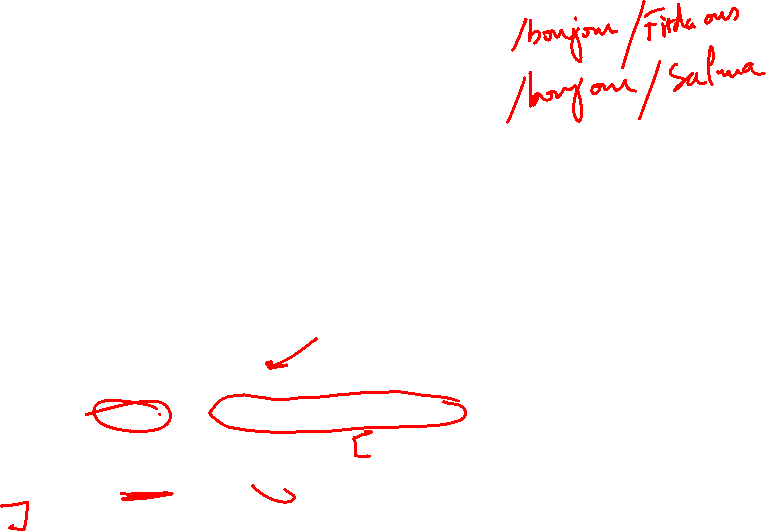 /bonjour/Firdaous
/bonjour/Salma